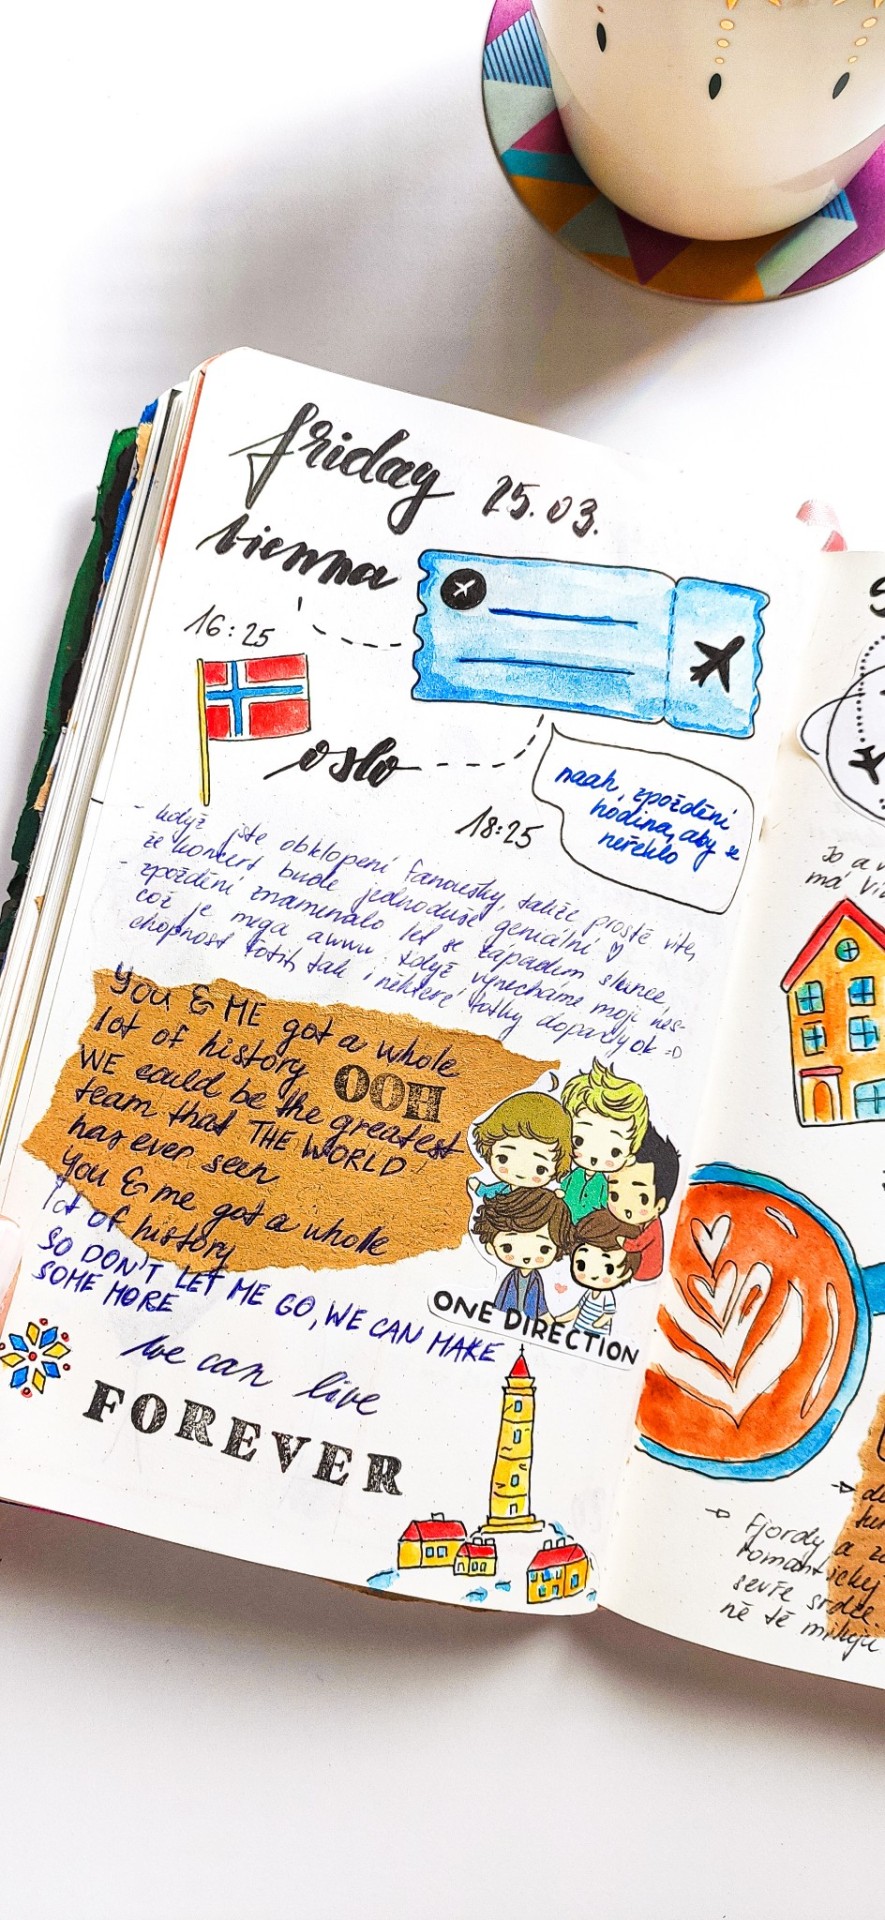 friday 25.03.
vienna
16:25
oslo
18:25
naah, zpoždění
hodina, aby se
neřeklo
- když jste obklopení fanoušky, takže prostě víte,
že koncert bude jednoduše geniální
- zpoždění znamenalo let se západem slunce,
což je mega awww. když vynecháme moji nes-
chopnost fotit, tak i některé fotky dopadly ok =D
YOU & ME got a whole
lot of history OOH
WE could be the greatest
team that THE WORLD
has ever seen
You & me got a whole
lot of history
SO DON'T LET ME GO, WE CAN MAKE
SOME MORE
we can live
FOREVER
ONE DIRECTION
S
Jo a v
má
Fjordy a
romantický
sevře srdce.
ně tě milují